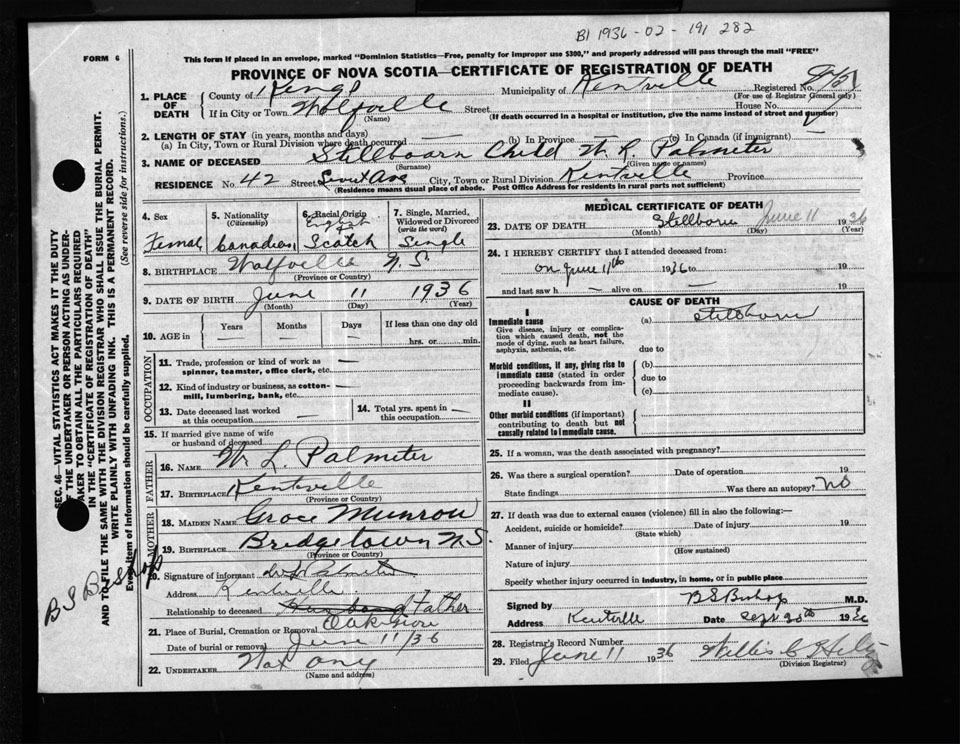 BI 1936-02-191 282
FORM 6
This form if placed in an envelope, marked "Dominion Statistics—Free, penalty for improper use $300," and properly addressed will pass through the mail "FREE"
PROVINCE OF NOVA SCOTIA—CERTIFICATE OF REGISTRATION OF DEATH
1. PLACE OF DEATH
County of Kings Municipality of Kentville Registered No.
(For use of Registrar General only)
If in City or Town Wolfville Street House No.
(Name) (If death occurred in a hospital or institution, give the name instead of street and number)
2. LENGTH OF STAY (in years, months and days)
(a) In City, Town or Rural Division where death occurred — (b) In Province — (c) In Canada (if immigrant)
3. NAME OF DECEASED Stillborn Child W. L. Palmeter
(Surname) (Given name or names)
RESIDENCE No. 42 Street Ave City, Town or Rural Division Kentville Province
(Residence means usual place of abode. Post Office Address for residents in rural parts not sufficient)
4. Sex
Female
5. Nationality
(Citizenship)
Canadian
6. Racial Origin
English &
Scotch
7. Single, Married, Widowed or Divorced
(write the word)
Single
8. BIRTHPLACE Wolfville N.S.
(Province or Country)
9. DATE OF BIRTH June 11 1936
(Month) (Day) (Year)
10. AGE in Years Months Days If less than one day old
— — — hrs. or min.
OCCUPATION
11. Trade, profession or kind of work as spinner, teamster, office clerk, etc. —
12. Kind of industry or business, as cotton-mill, lumbering, bank, etc. —
13. Date deceased last worked at this occupation —
14. Total yrs. spent in this occupation —
15. If married give name of wife or husband of deceased
FATHER
16. NAME W. L. Palmeter
17. BIRTHPLACE Kentville
(Province or Country)
MOTHER
18. MAIDEN NAME Grace Munrow
19. BIRTHPLACE Bridgetown N.S.
(Province or Country)
20. Signature of informant W L Palmeter
Address Kentville
Relationship to deceased Husband Father
21. Place of Burial, Cremation or Removal Oak Grove
Date of burial or removal June 11/36
22. UNDERTAKER
(Name and address)
MEDICAL CERTIFICATE OF DEATH
23. DATE OF DEATH Stillborn June 11 1936
(Month) (Day) (Year)
24. I HEREBY CERTIFY that I attended deceased from:
on June 11th 1936 to 19
and last saw h — alive on — 19
CAUSE OF DEATH
I
Immediate cause
Give disease, injury or complication which caused death, not the mode of dying, such as heart failure, asphyxia, asthenia, etc.
(a) Stillborn
due to
Morbid conditions, if any, giving rise to immediate cause (stated in order proceeding backwards from immediate cause).
(b)
due to
(c)
II
Other morbid conditions (if important) contributing to death but not causally related to immediate cause.
25. If a woman, was the death associated with pregnancy?
26. Was there a surgical operation? Date of operation 19
State findings Was there an autopsy? No
27. If death was due to external causes (violence) fill in also the following:—
Accident, suicide or homicide? Date of injury 19
(State which)
Manner of injury
(How sustained)
Nature of injury
Specify whether injury occurred in industry, in home, or in public place
Signed by B S Bishop M.D.
Address Kentville Date Sept 20th 1936
28. Registrar's Record Number
29. Filed June 11 1936 Willis C
(Division Registrar)
SEC. 46—VITAL STATISTICS ACT MAKES IT THE DUTY OF THE UNDERTAKER OR PERSON ACTING AS UNDERTAKER TO OBTAIN ALL THE PARTICULARS REQUIRED IN THE "CERTIFICATE OF REGISTRATION OF DEATH" AND TO FILE THE SAME WITH THE DIVISION REGISTRAR WHO SHALL ISSUE THE BURIAL PERMIT.
WRITE PLAINLY WITH UNFADING INK. THIS IS A PERMANENT RECORD.
Every item of information should be carefully supplied. (See reverse side for instructions.)
B S Bishop